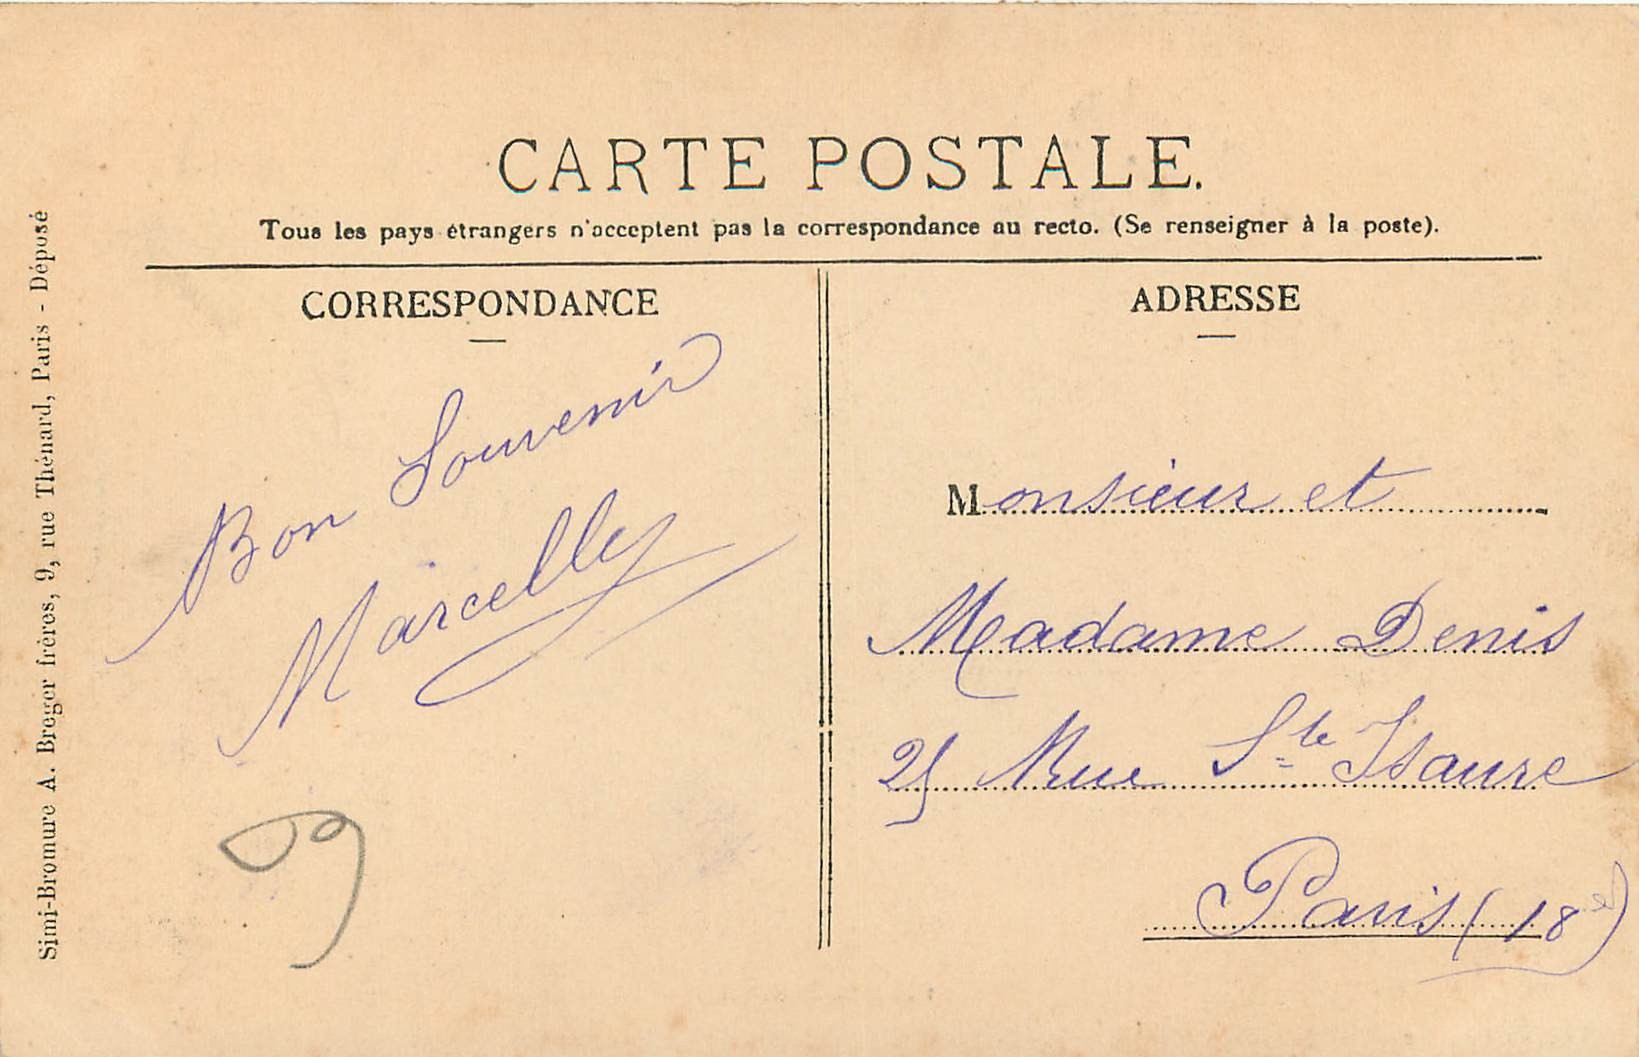 CARTE POSTALE.
Tous les pays étrangers n'acceptent pas la correspondance au recto. (Se renseigner à la poste).
CORRESPONDANCE
Bon Souvenir
Marcelle
ADRESSE
Monsieur et
Madame Denis
25 Rue Ste Isaure
Paris (18e)
Simi-Bromure A. Breger frères, 9, rue Thénard, Paris - Déposé